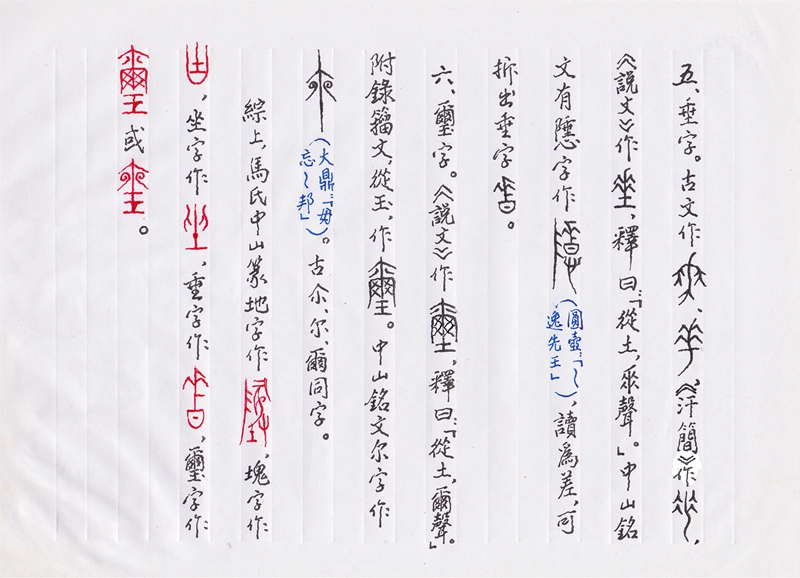 五、垂字。古文作、《汗簡》作，
《說文》作，釋曰：「從土，𠂹聲。」中山銘
文有隱字作（圓壺：「～逸先王」），讀為差，可
拆出垂字。
六、璽字。《說文》作，釋曰：「從土，爾聲。」
附錄籀文，從玉，作。中山銘文尔字作
（大鼎：「毋忘～邦」）。古尒、尔、爾同字。
綜上，馬氏中山篆地字作，塊字作
，坐字作，垂字作，璽字作
或。